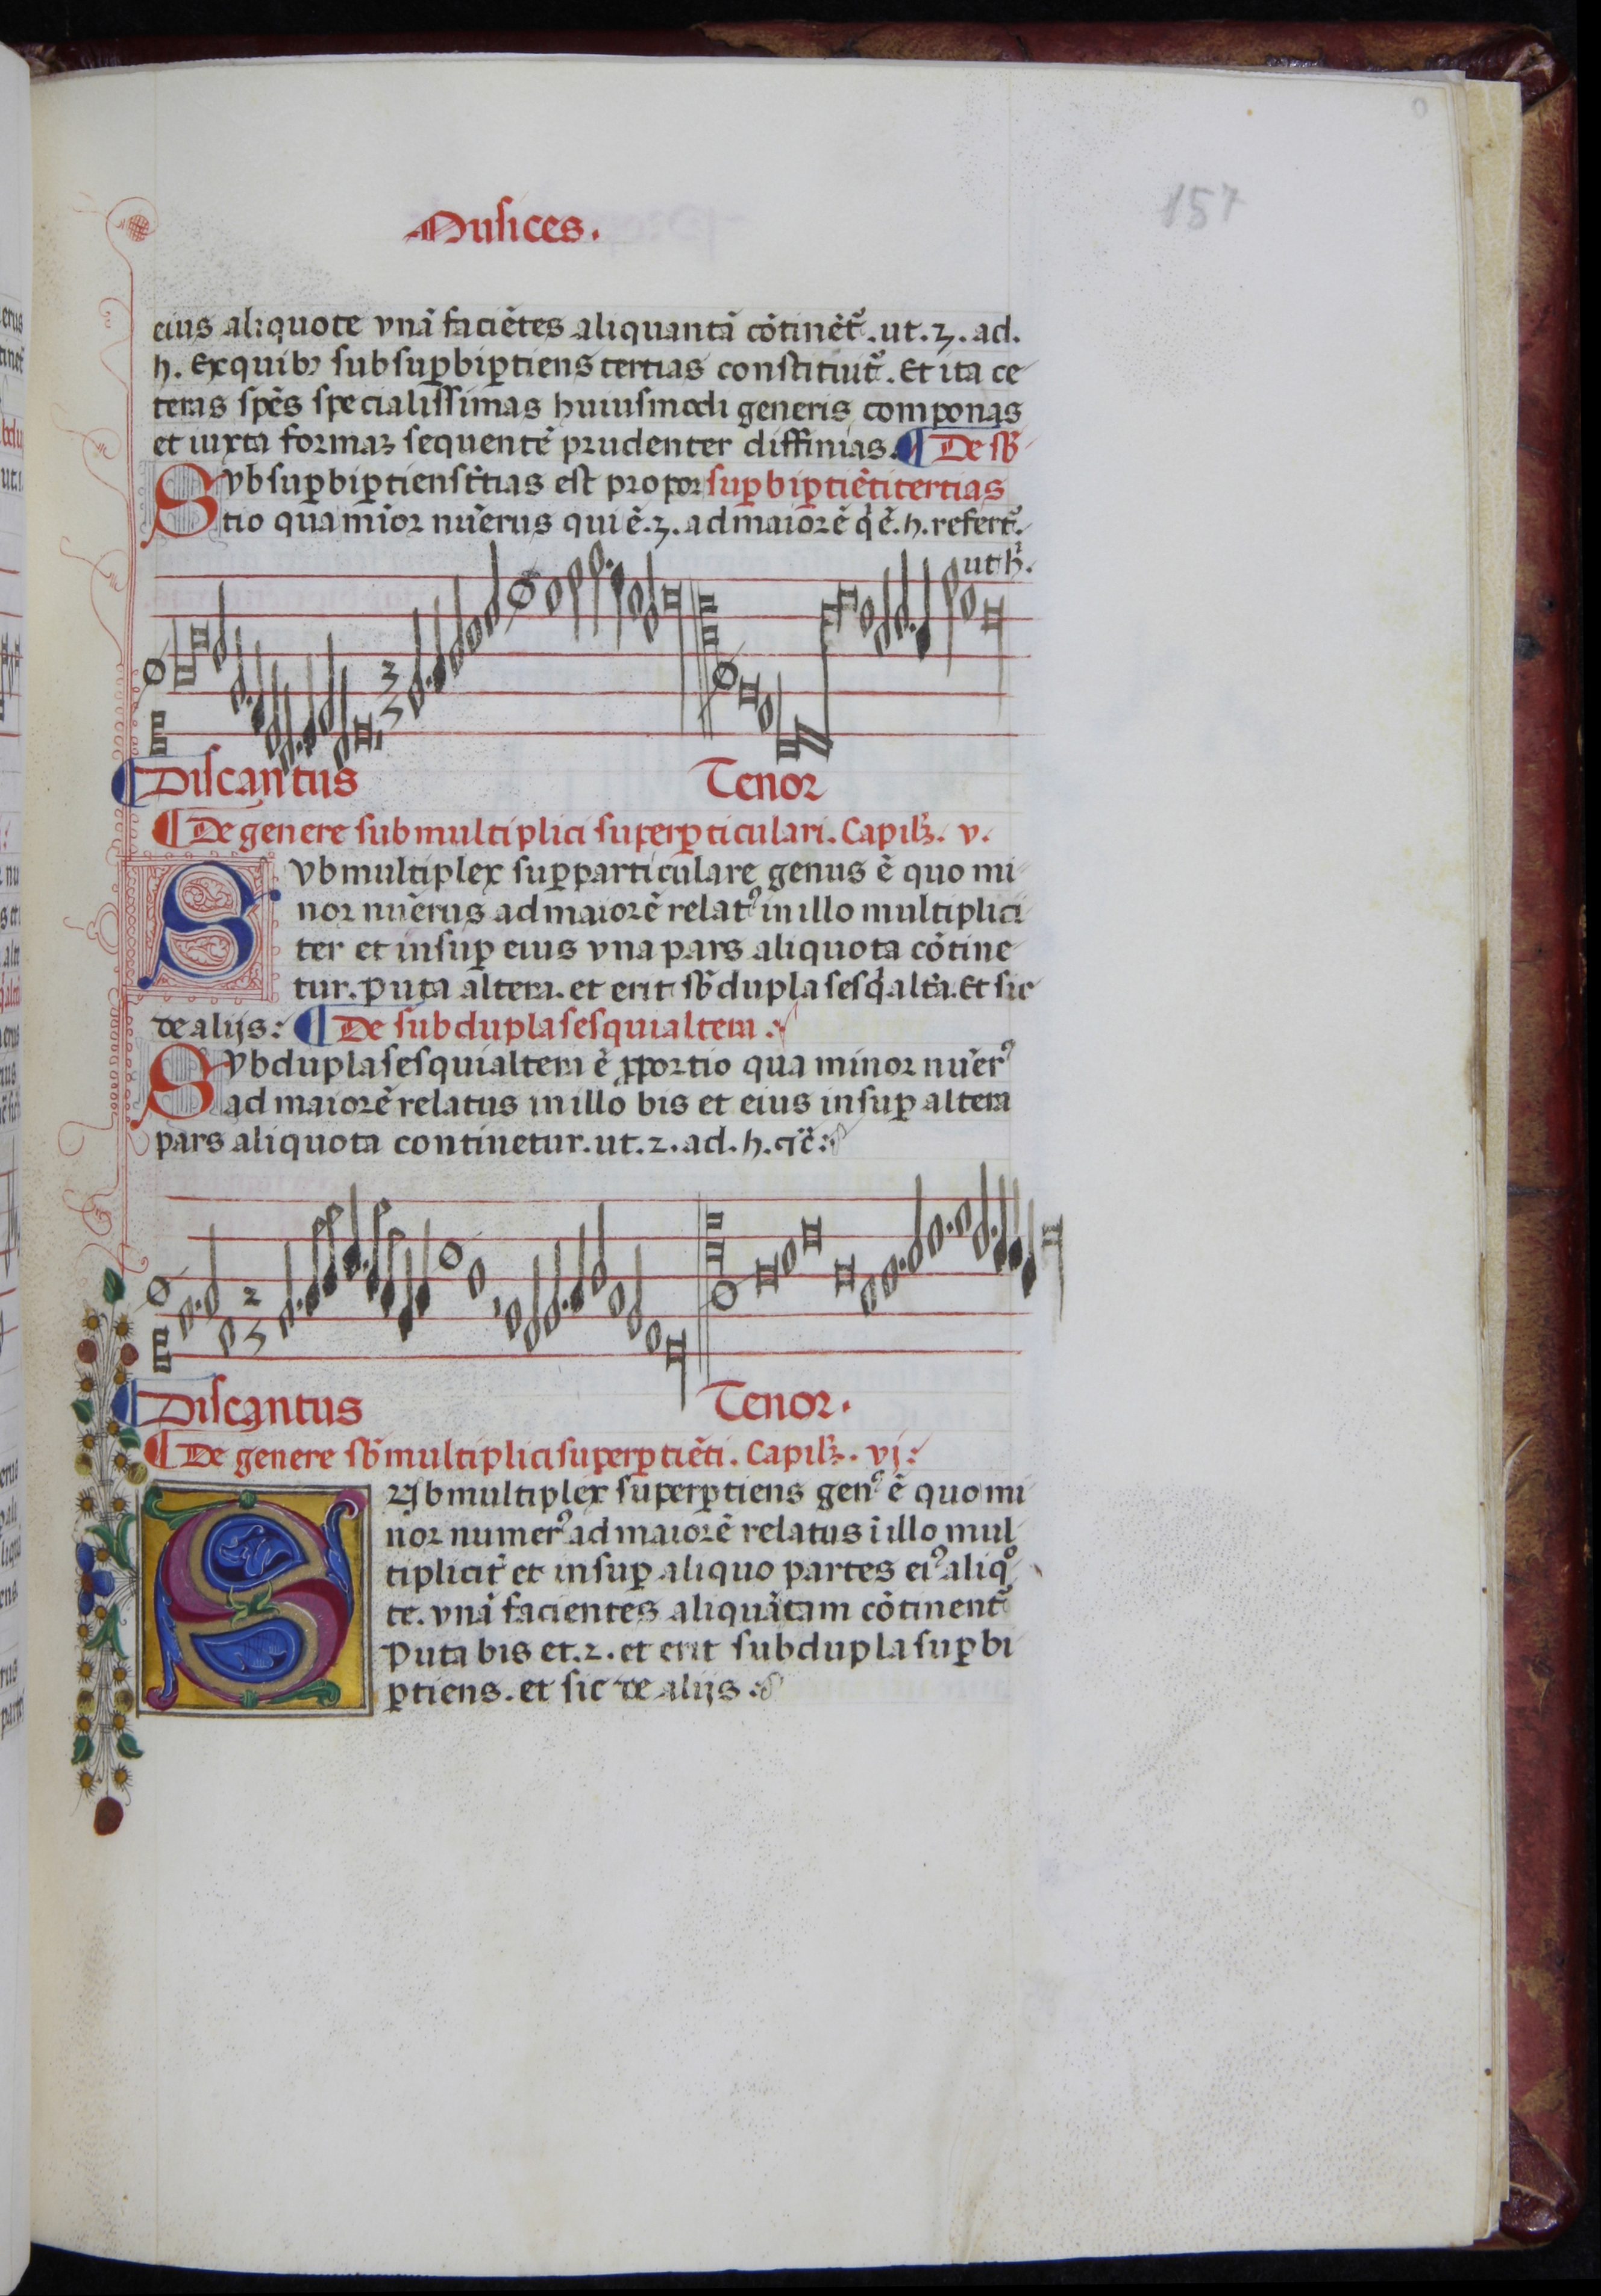 157
Musices.
eius aliquote vnā faciētes aliquantā cōtinēt᷑. ut. 3. ad.
5. Ex quibꝫ subsuꝑbiꝑtiens tertias constituit᷑. Et ita ce
teras spēs specialissimas huiusmodi generis componas
et iuxta formaꝫ sequentē prudenter diffinias. ¶ De sb̄
Svbsuꝑbiꝑtiens t̄tias est propor suꝑbiꝑtiēti tertias
tio qua mīor nūerus qui ē. 3. ad maiorē q̇ ē. 5. refert᷑.
ut h̄.
2
5
¶ Discantus Tenor
¶ De genere submultiplici superꝑticulari. Capil̄ꝫ. v.
SVbmultiplex suꝑparticulare genus ē quo mi
nor nūerus ad maiorē relatꝰ in illo multiplici
ter et insuꝑ eius vna pars aliquota cōtine
tur. Puta altera. et erit sb̄dupla sesq̇alt̄a. Et sic
de alijs: ¶ De subdupla sesquialtera :
Svbdupla sesquialtera ē ꝓportio qua minor nūerꝰ
ad maiorē relatus in illo bis et eius insuꝑ altera
pars aliquota continetur. ut. 2. ad. 5.
2
5
¶ Discantus Tenor.
¶ De genere sb̄multiplici superꝑtiēti. Capil̄ꝫ. vj:
SVbmultiplex superꝑtiens genꝰ ē quo mi
nor numerꝰ ad maiorē relatus ī illo mul
tiplicit̄ et insuꝑ aliquo partes eiꝰ aliqͦ
te. vnā facientes aliquātam cōtinent᷑
Puta bis et. 2. et erit subdupla suꝑbi
ꝑtiens. et sic de alijs :